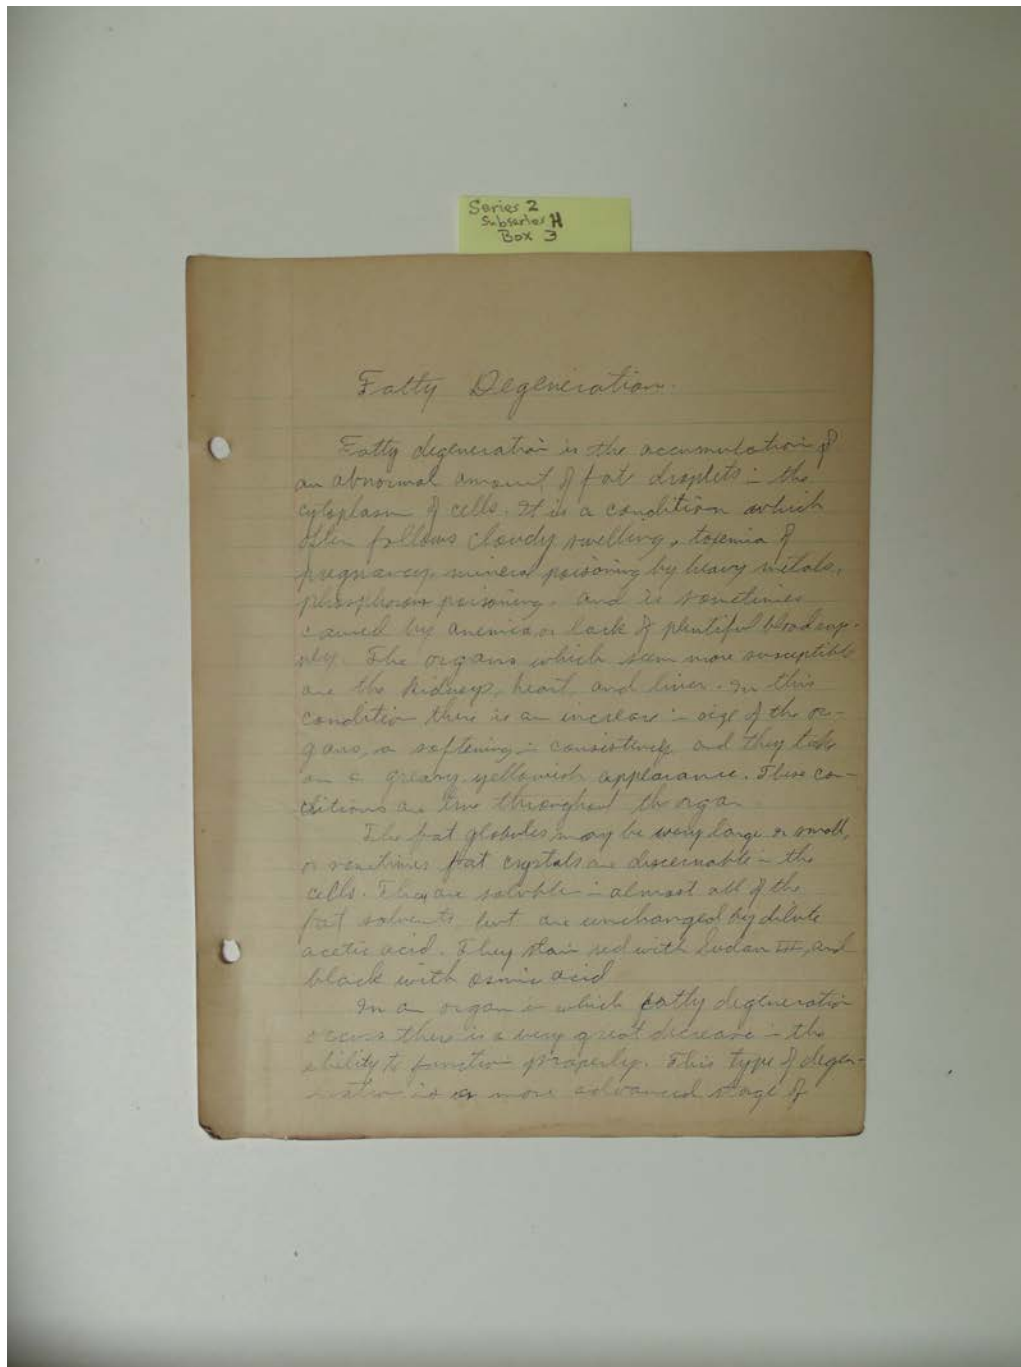 Series 2
Subseries H
Box 3
Fatty Degeneration.
Fatty degeneration is the accumulation of
an abnormal amount of fat droplets in the
cytoplasm of cells. It is a condition which
often follows cloudy swelling, toxemia of
pregnancy, mineral poisoning by heavy metals,
phosphorous poisoning, and is sometimes
caused by anemia or lack of plentiful blood sup-
ply. The organs which seem more susceptible
are the kidneys, heart, and liver. In this
condition there is an increase in size of the or-
gans, a softening in consistency and they take
on a greasy yellowish appearance. These con-
ditions are true throughout the organ
The fat globules may be very large or small,
or sometimes fat crystals are discernable in the
cells. They are soluble in almost all of the
fat solvents but are unchanged by dilute
acetic acid. They stain red with Sudan III, and
black with osmic acid
In an organ in which fatty degeneration
occurs there is a very great decrease in the
ability to function properly. This type of degen-
eration is a more advanced stage of